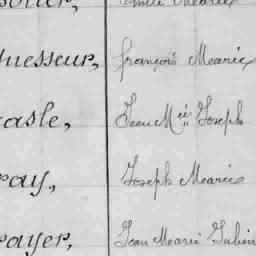 uesseur, françois Marie
asle, Jean M ie Joseph
ray, Joseph Marie
rayer, Jean Marie Julien